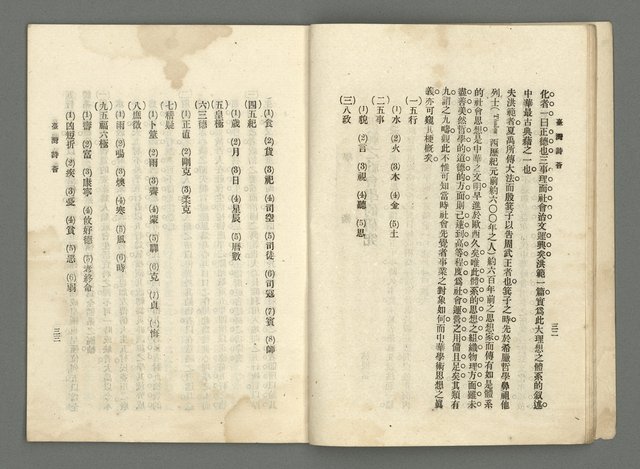 臺灣詩薈
三二
化者一曰正德也三事理而社會治文運興矣洪範一篇實爲此大理想之體系的叙述
中華最古典籍之一也
夫洪範者夏禹所傳大法而殷箕子以告周武王者也箕子之時先於希臘哲學鼻祖他
列士(Thales 西歷紀元前約六〇〇年之人)約六百年前之思想家而傳有如是體系
的社會思想是中華之文明早進於歐西久矣唯此體系的思想之組織物理方面雖未
盡善美然哲學的道德的方面則已達到高等程度爲社會運營之用備且足矣其類有
九謂之九疇觀此不惟可知當時社會先覺者事業之對象如何而中華學術思想之眞
義亦可窺其梗概矣
(一)五行
(1)水 (2)火 (3)木 (4)金 (5)土
(二)五事
(1)貌 (2)言 (3)視 (4)聽 (5)思
(三)八政
(1)食 (2)貨 (3)祀 (4)司空 (5)司徒 (6)司寇 (7)賓 (8)師
(四)五紀
(1)歲 (2)月 (3)日 (4)星辰 (5)曆數
(五)皇極
(六)三德
(1)正直 (2)剛克 (3)柔克
(七)稽疑
(1)卜筮 (2)雨 (3)霽 (4)蒙 (5)驛 (6)克 (7)貞 悔
(八)庶徵
(1)雨 (2)暘 (3)燠 (4)寒 (5)風 (6)時
(九)五福六極
(1)壽 (2)富 (3)康寧 (4)攸好德 (5)考終命
(1)凶短折 (2)疾 (3)憂 (4)貧 (5)惡 (6)弱
臺灣詩薈
三三